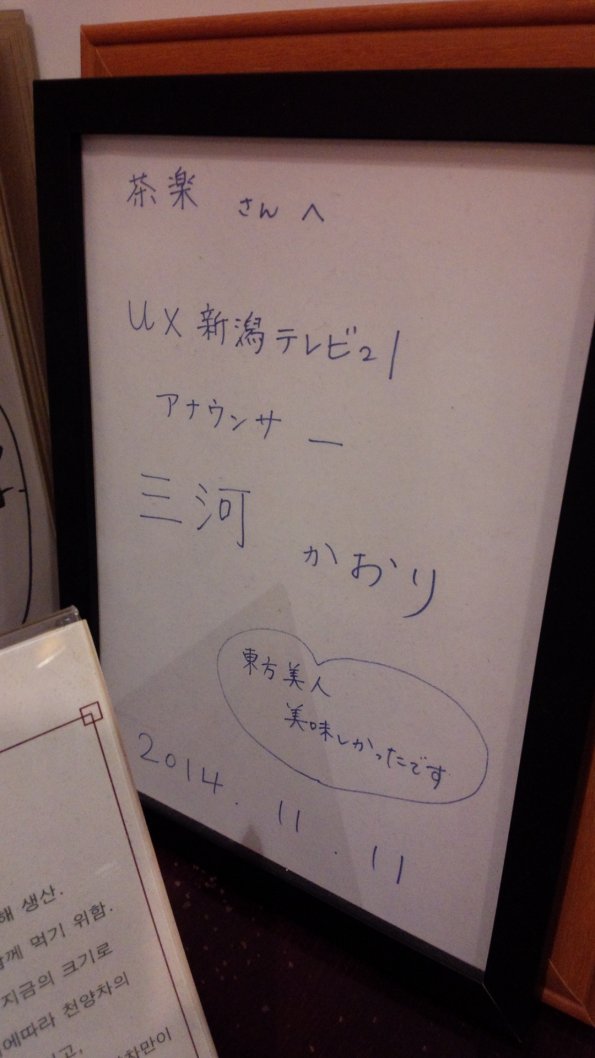 茶楽 さんへ
UX 新潟テレビ21
アナウンサー
三河 かおり
東方美人
美味しかったです
2014.11.11
해 생산.
함께 먹기 위함.
지금의 크기로
에따라 천양차의
고,
차만이